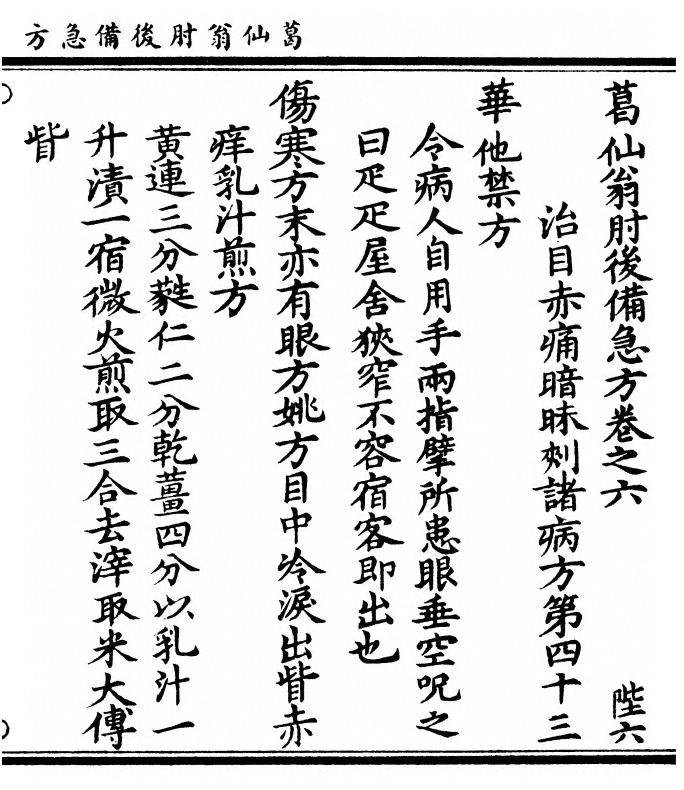 葛仙翁肘後備急方
葛仙翁肘後備急方卷之六 陛六
治目赤痛暗昧刺諸病方第四十三
華他禁方
令病人自用手兩指擘所患眼垂空呪之
曰疋疋屋舍狹窄不容宿客即出也
傷寒方末亦有眼方姚方目中冷淚出眥赤
痒乳汁煎方
黃連三分蕤仁二分乾薑四分以乳汁一
升漬一宿微火煎取三合去滓取米大傅
眥